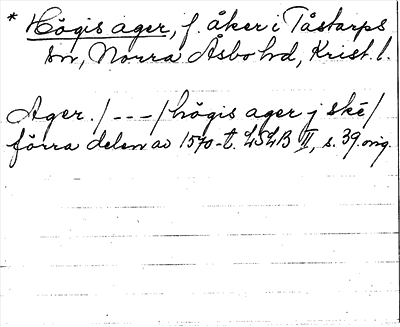 * Högis ager, f. åker i Tåstarps
sn, Norra Åsbo hd, Krist. l.
Ager. /---/ högis ager j skē/
förra delen av 1570-t. LSLB II, s. 39 orig.